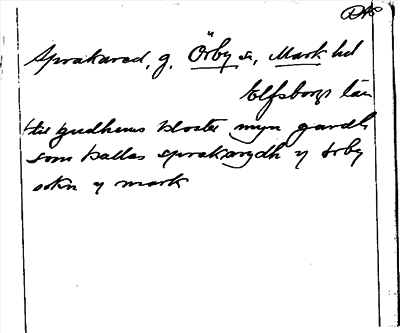 DMS
Sprakared, g, Örby sn, Mark hd
Elfsborgs län
til gudhems kloster myn gardh
som kallas sprakarydh y örby
sokn y mark